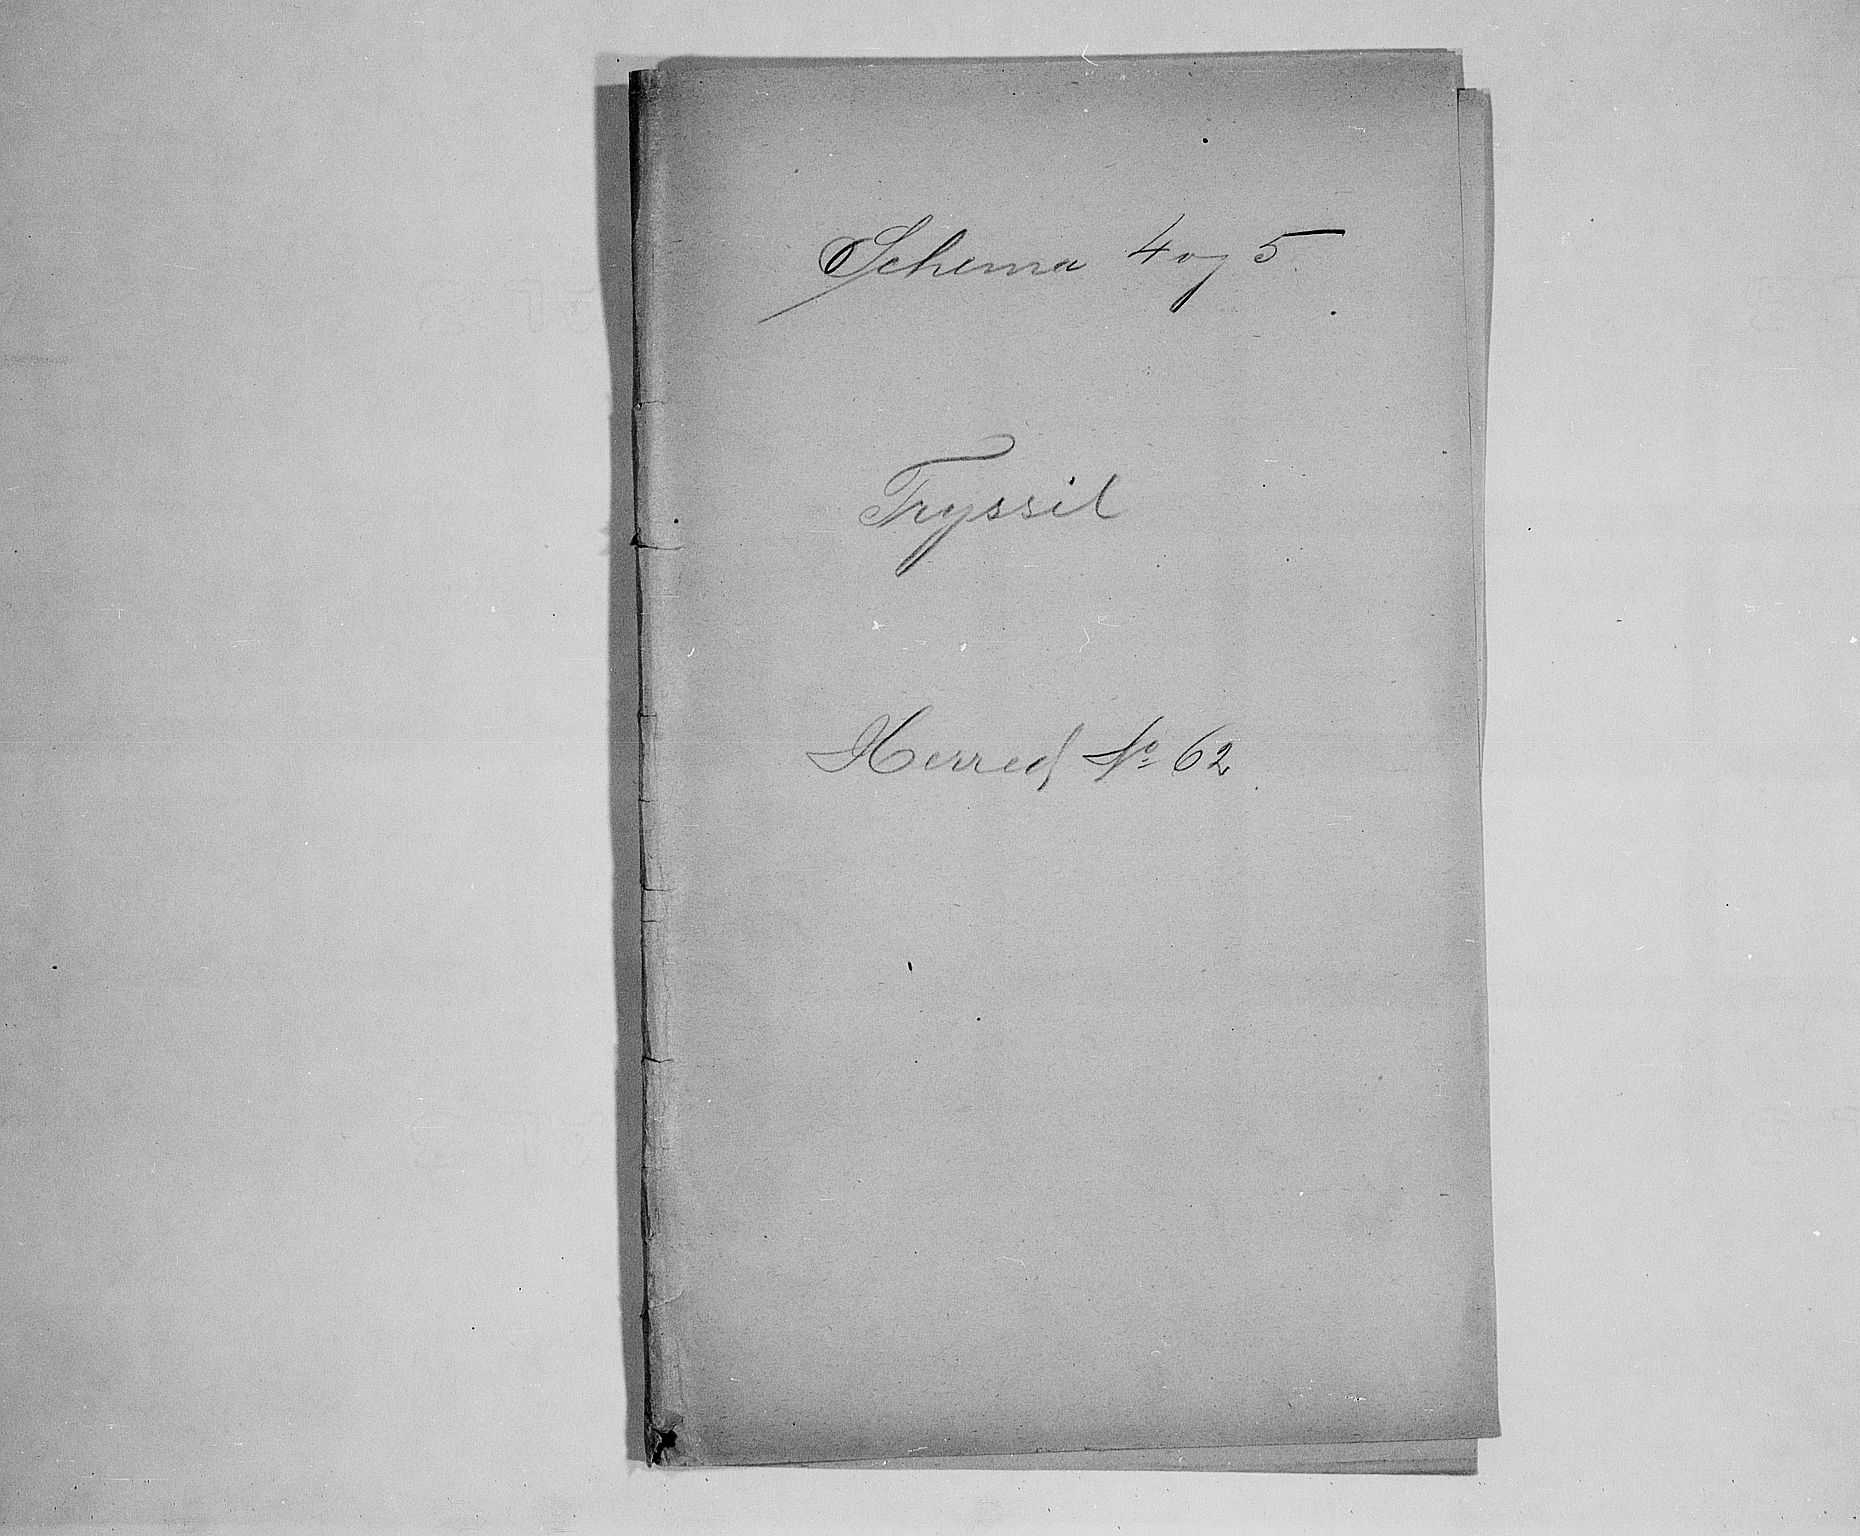 Schema 4 og 5.
Tryssil
Herred No 62.